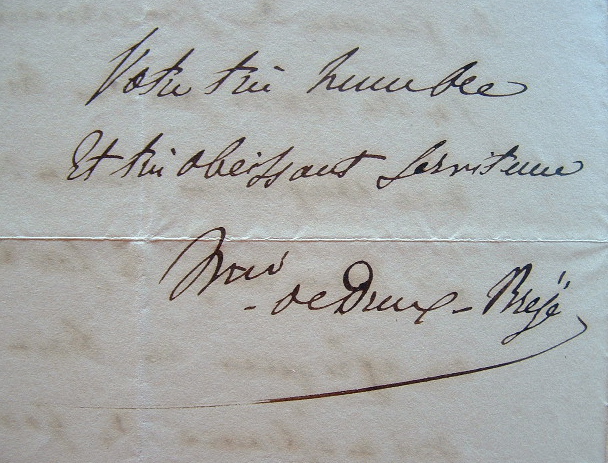 Votre très humble
Et très obéissant serviteur
de Dreux-Brézé